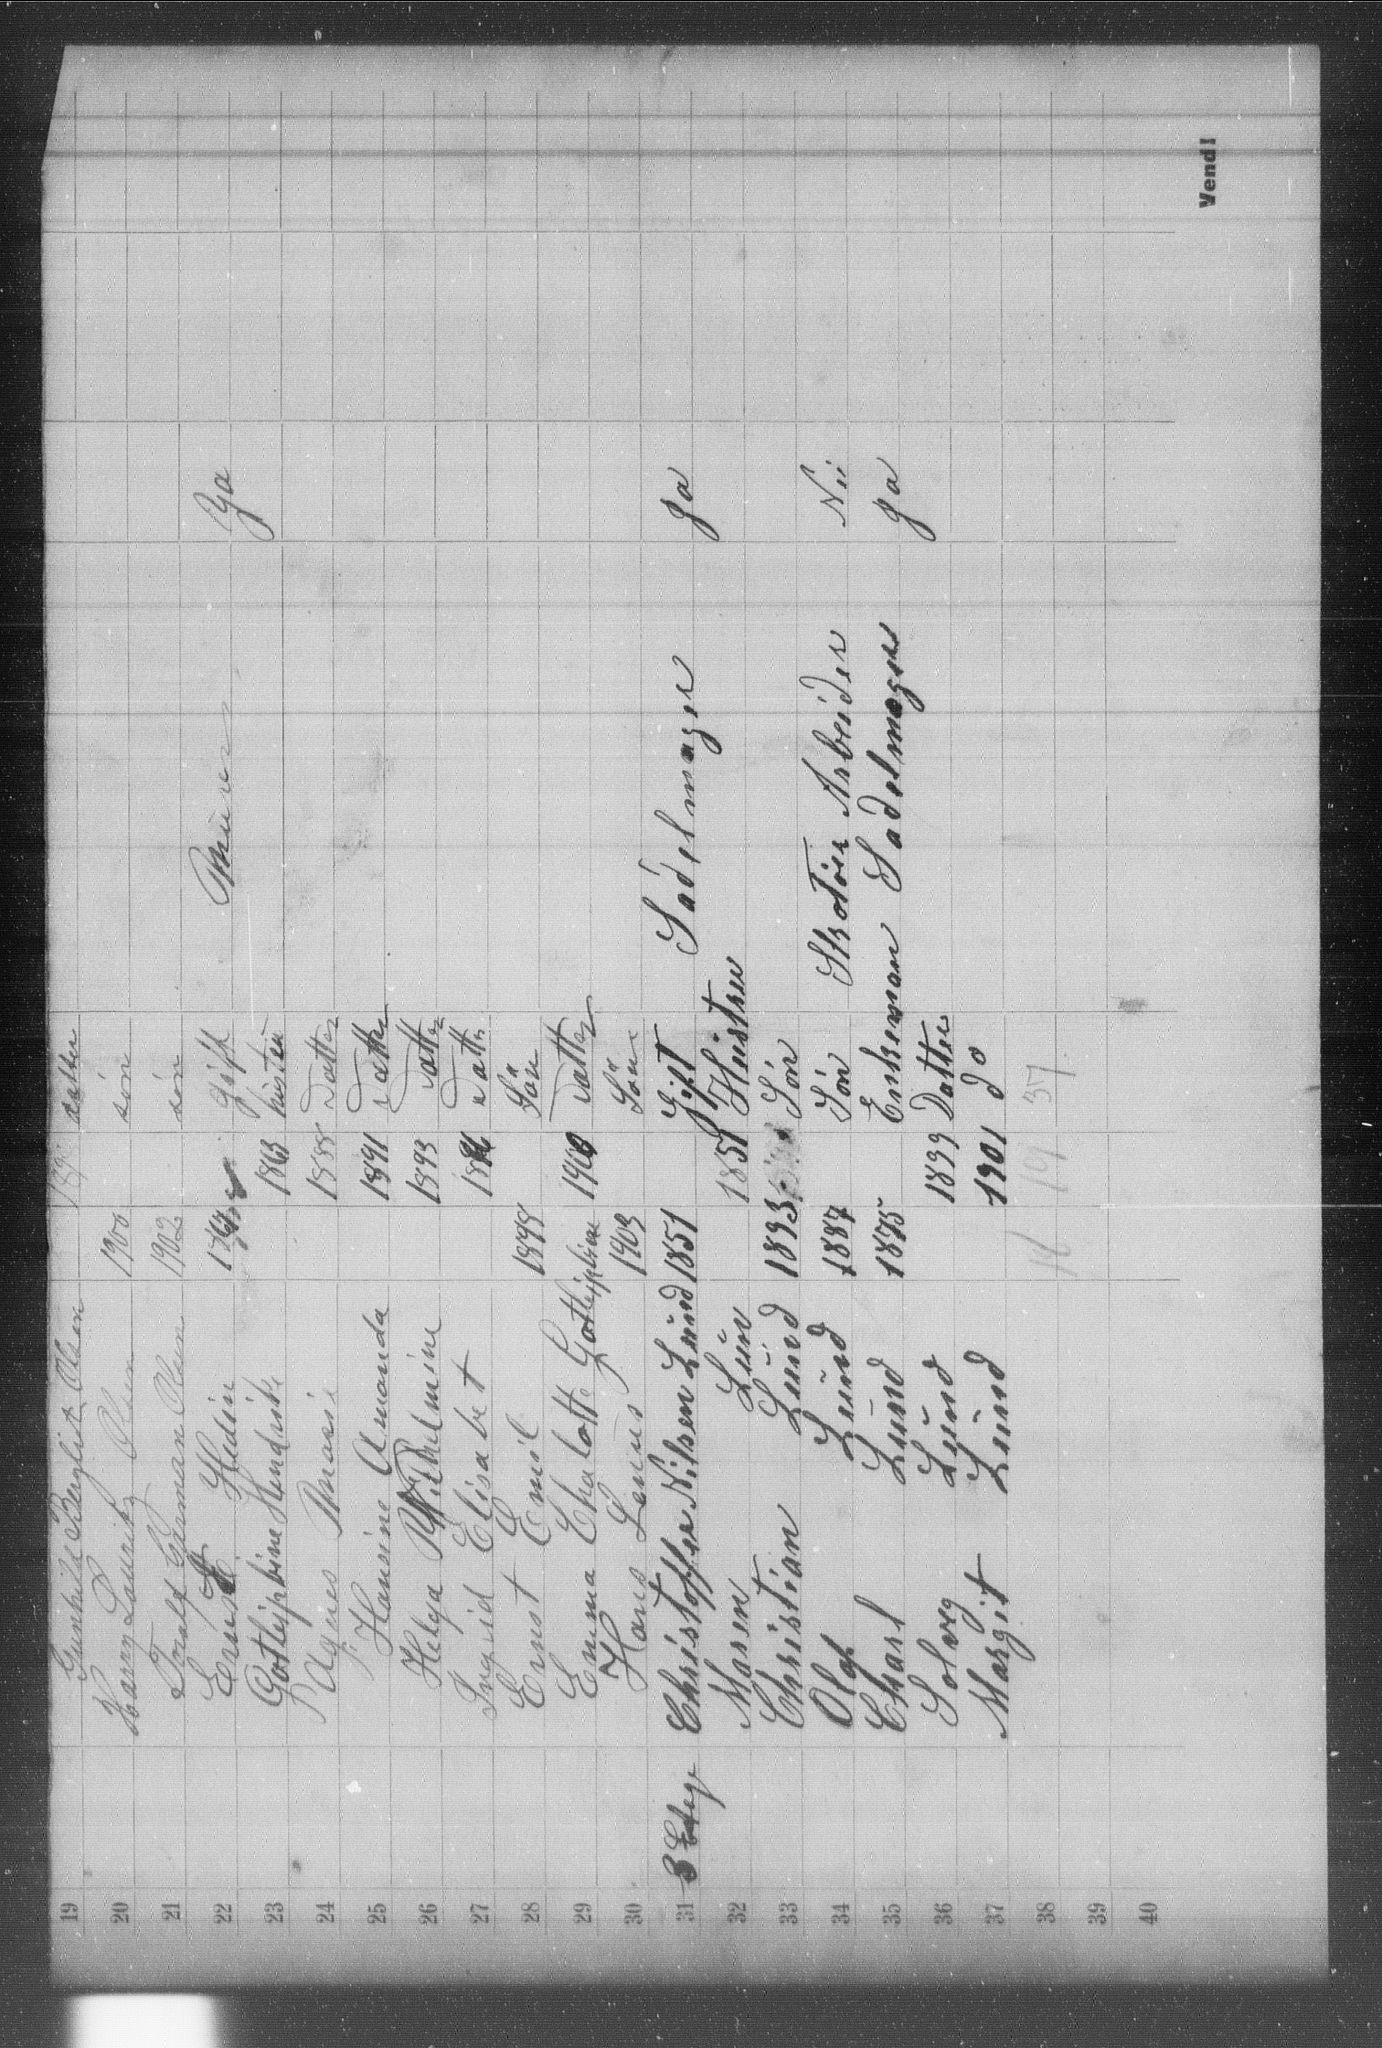 19 Gunhild Berglist Olsen datter
20 Harry Lauritz Olsen 1900 sön
21 Olsen 1902 sön
22 Ernst Hedin gift Murer Ja
23 Gotlijbine Hendrike 1863 hustru
24 Agnes Marie 1888 Datter
25 Hansine Amanda 1891 Datter
26 Helga Wilhelmine 1893 Datter
27 Ingrid Elisabet Datter
28 Ernst Emil 1898 Sön
29 Emma Chalotte Gotlijbine 1900 Datter
30 Hans Linus 1903 Sön
31 3 Etage Christoffer Nilsen Lund 1851 Gift Sadelmager Ja
32 Maren Lun 1851 Hustru
33 Christian Lund 1893 Sön
34 Olaf Lund 1887 Sön Skotöi Arbeider Nii
35 Charl Lund 1875 Enkeman Sadelmager Ja
36 Solveg Lund 1899 Datter
37 Margit Lund 1901 do
38 18 19 37
39
40
Vend!